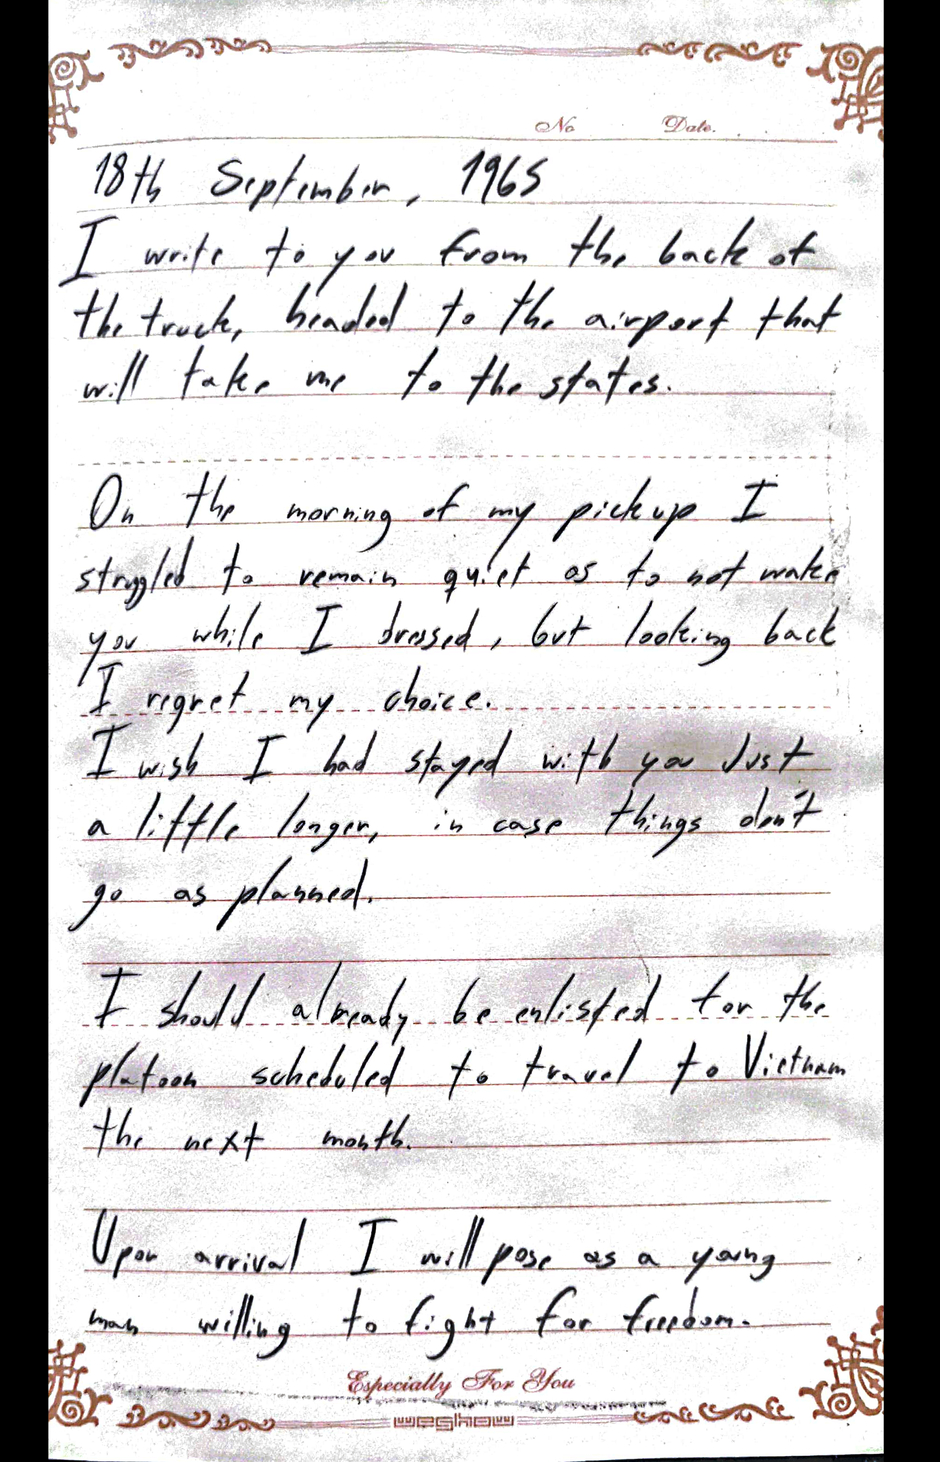 No Date.
18th September, 1965
I write to you from the back of
the truck, headed to the airport that
will take me to the states.
On the morning of my pickup I
struggled to remain quiet as to not wake
you while I dressed, but looking back
I regret my choice.
I wish I had stayed with you Just
a little longer, in case things don't
go as planned.
I should already be enlisted for the
platoon scheduled to travel to Vietnam
the next month.
Upon arrival I will pose as a young
man willing to fight for freedom.
Especially For You